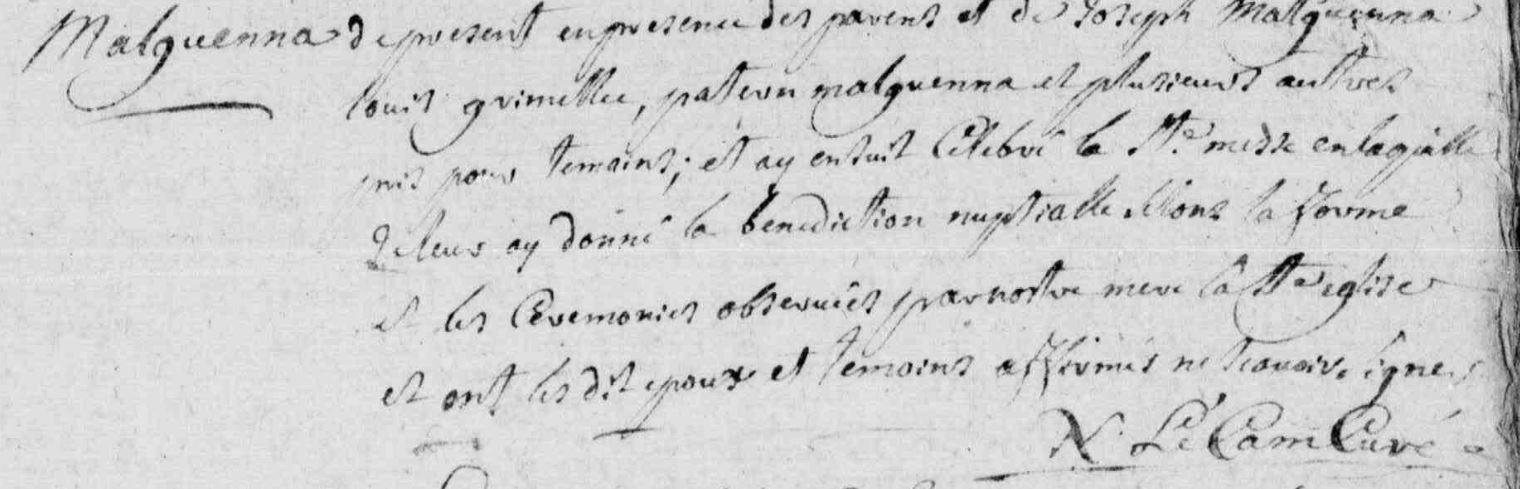 Malguenna de present en presence des parens et de Joseph Malguenna
louis grimillec, malguenna et plusieurs autres
pris pour temains; et ay ensuit Célébré la Ste messe en laquelle
Je leur ay donné la benediction nuptialle sellons la forme
et les Cérémonies observéés par nostre mere la Ste eglise
et ont les dit epoux et temoins affirmés ne scavoir signer
N. Lé Cam Curé